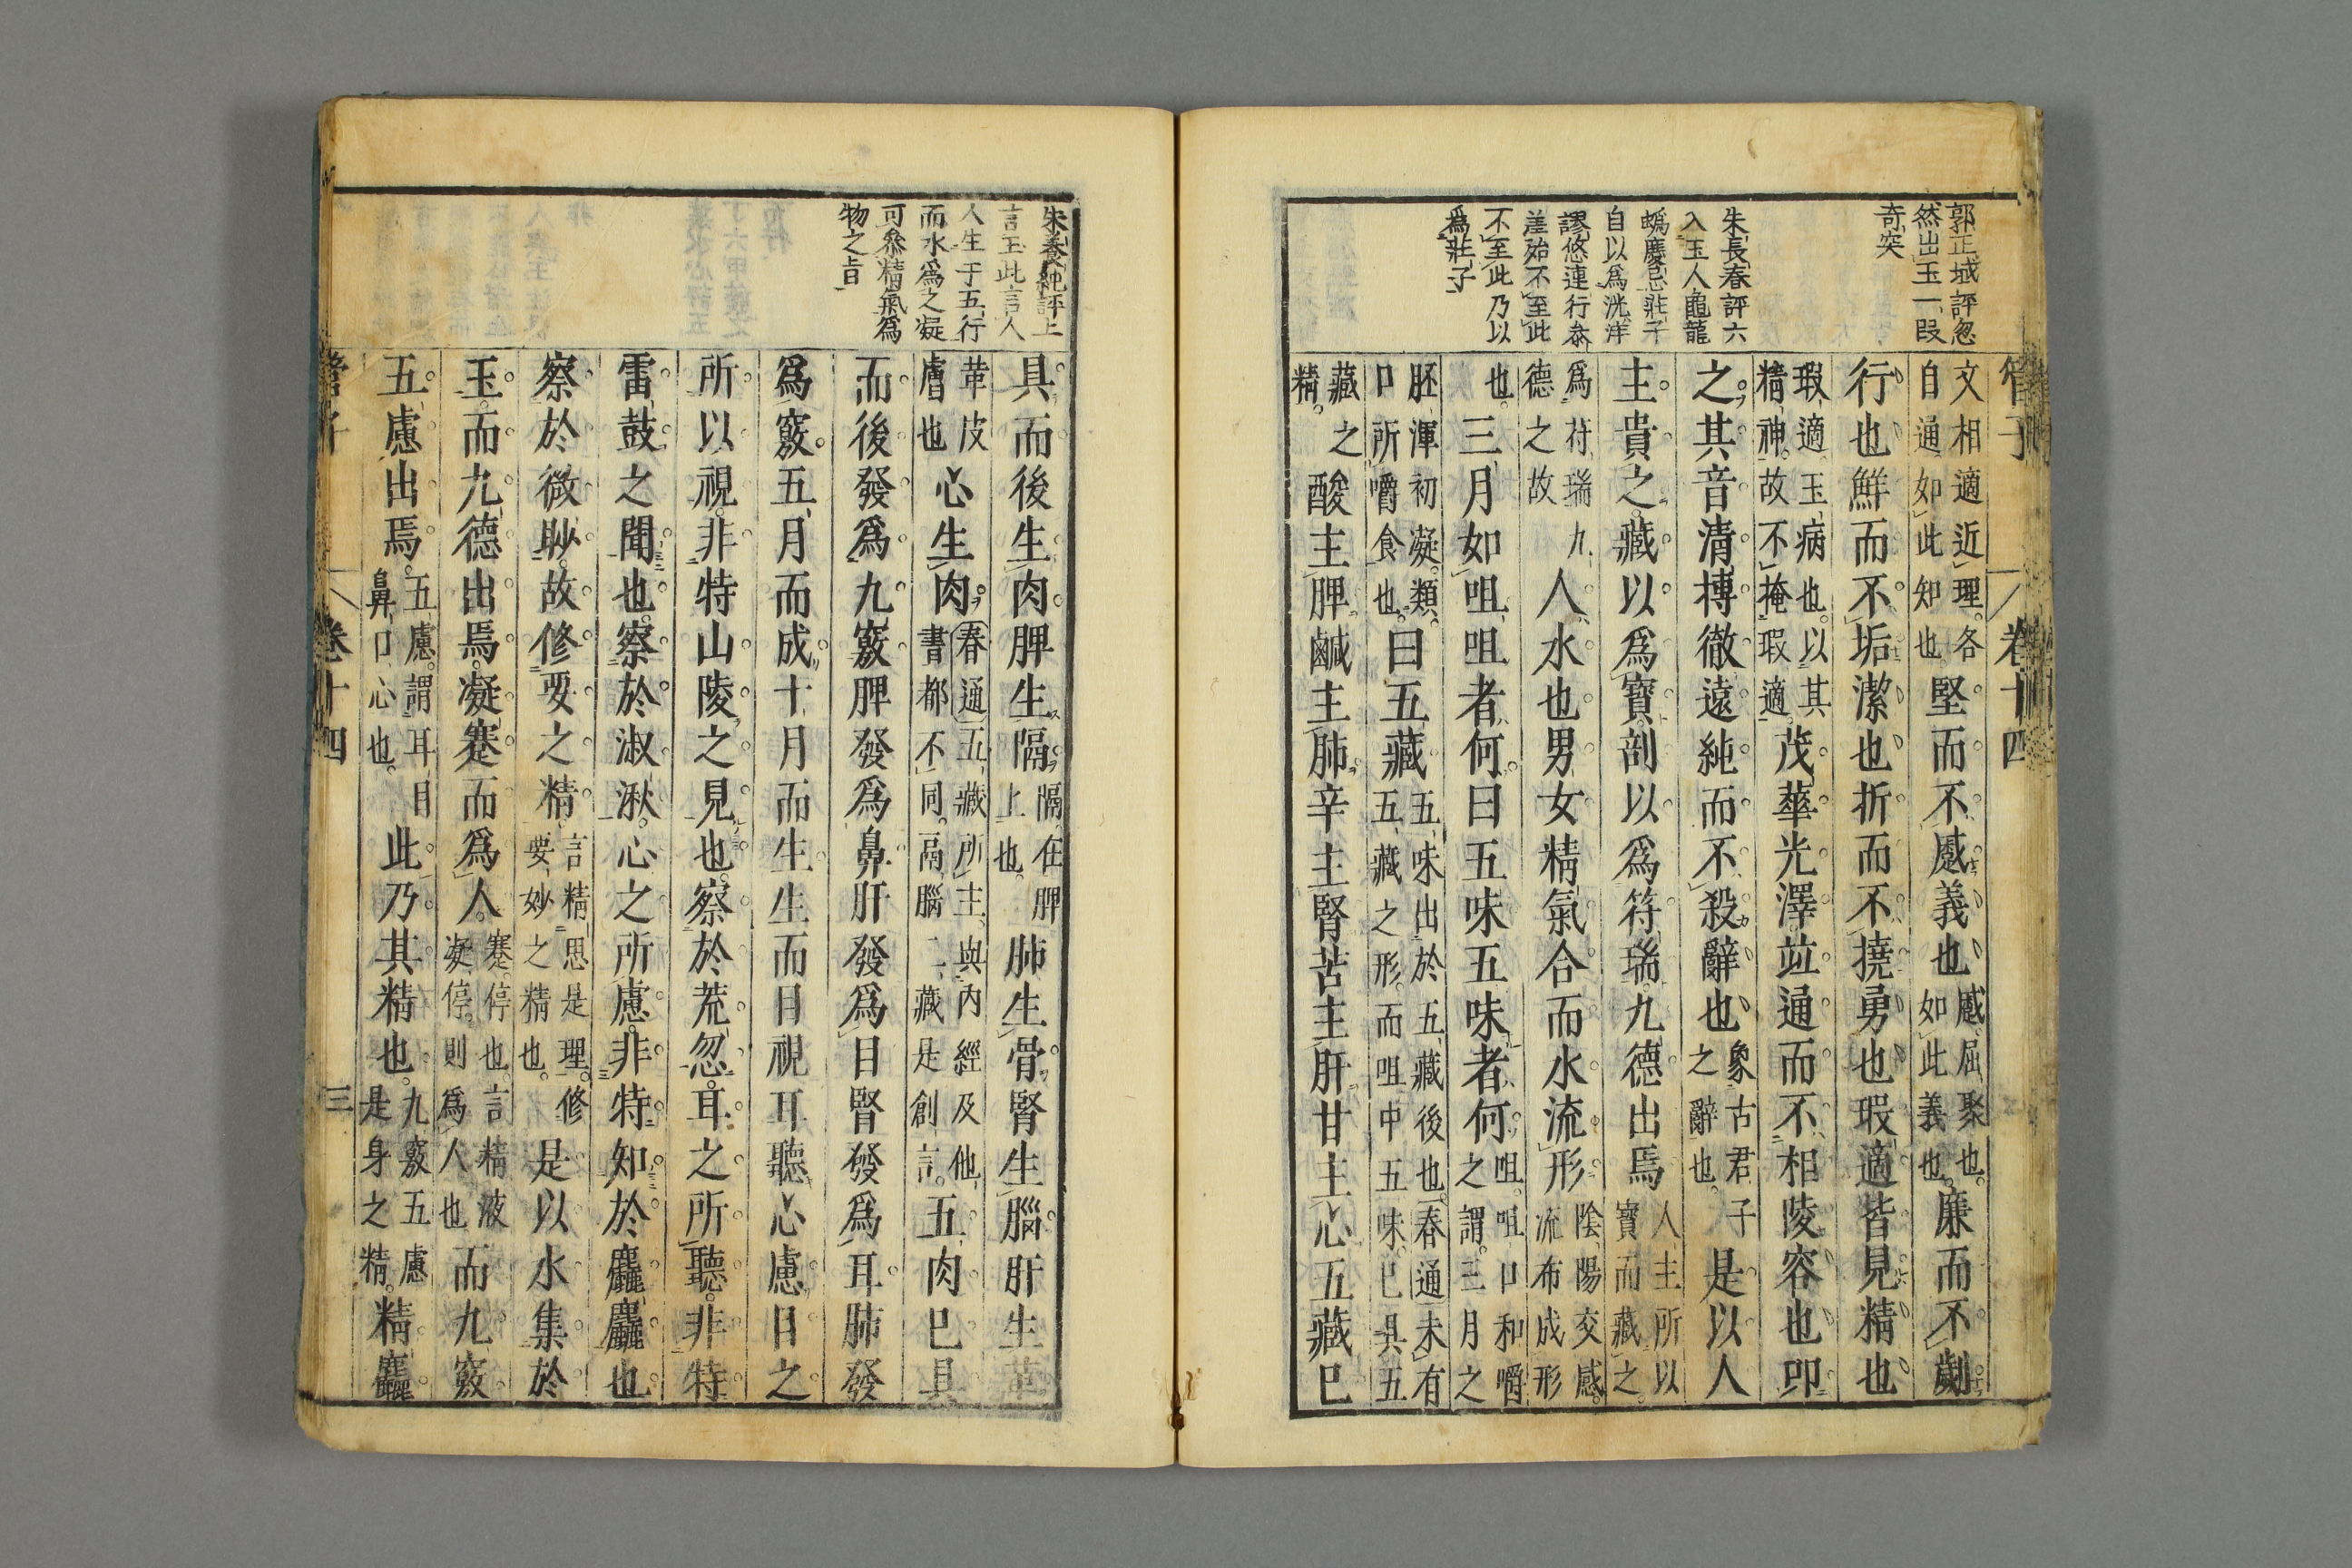 管子 卷十四
郭正域評忽
然出玉一段
奇突
朱長春評六
入玉人龜龍
蟡慶忌莊子
自以爲洸洋
謬悠連行叅
差殆不至此
不至此乃以
爲莊子
文相適近理各自通如此知也堅而不蹙義也蹙屈聚也如此義也廉而不劌
行也鮮而不垢潔也折而不撓勇也瑕適皆見精也
瑕適玉病也以其精神故不掩瑕適茂華光澤竝通而不相陵容也叩
之其音清搏徹遠純而不殺辭也象古君子之辭也是以人
主貴之藏以爲寶剖以爲符瑞九德出焉人主所以寶而藏之
爲符瑞九德之故人水也男女精氣合而水流形陰陽交感流布成形
也三月如咀咀者何曰五味五味者何咀咀口和嚼之謂三月之
胚渾初凝類口所嚼食也曰五藏五味出於五藏後也春通未有五藏之形而咀中五味已具五
藏之精酸主脾鹹主肺辛主腎苦主肝甘主心五藏已
朱養純評上
言玉此言人
人生于五行
而水爲之凝
可叅精氣爲
物之旨
具而後生肉脾生隔隔在脾上也肺生骨腎生腦肝生革
革皮膚也心生肉春通五藏所主與內經及他書都不同鬲腦二藏是創言五肉已具
而後發爲九竅脾發爲鼻肝發爲目腎發爲耳肺發
爲竅五月而成十月而生生而目視耳聽心慮目之
所以視非特山陵之見也察於荒忽耳之所聽非特
雷鼓之聞也察於淑湫心之所慮非特知於麤麤也
察於微眇故修要之精言精思是理修要妙之精也是以水集於
玉而九德出焉凝蹇而爲人蹇停也言精液凝停則爲人也而九竅
五慮出焉五慮謂耳目鼻口心也此乃其精也九竅五慮是身之精精麤
管子 卷十四 三